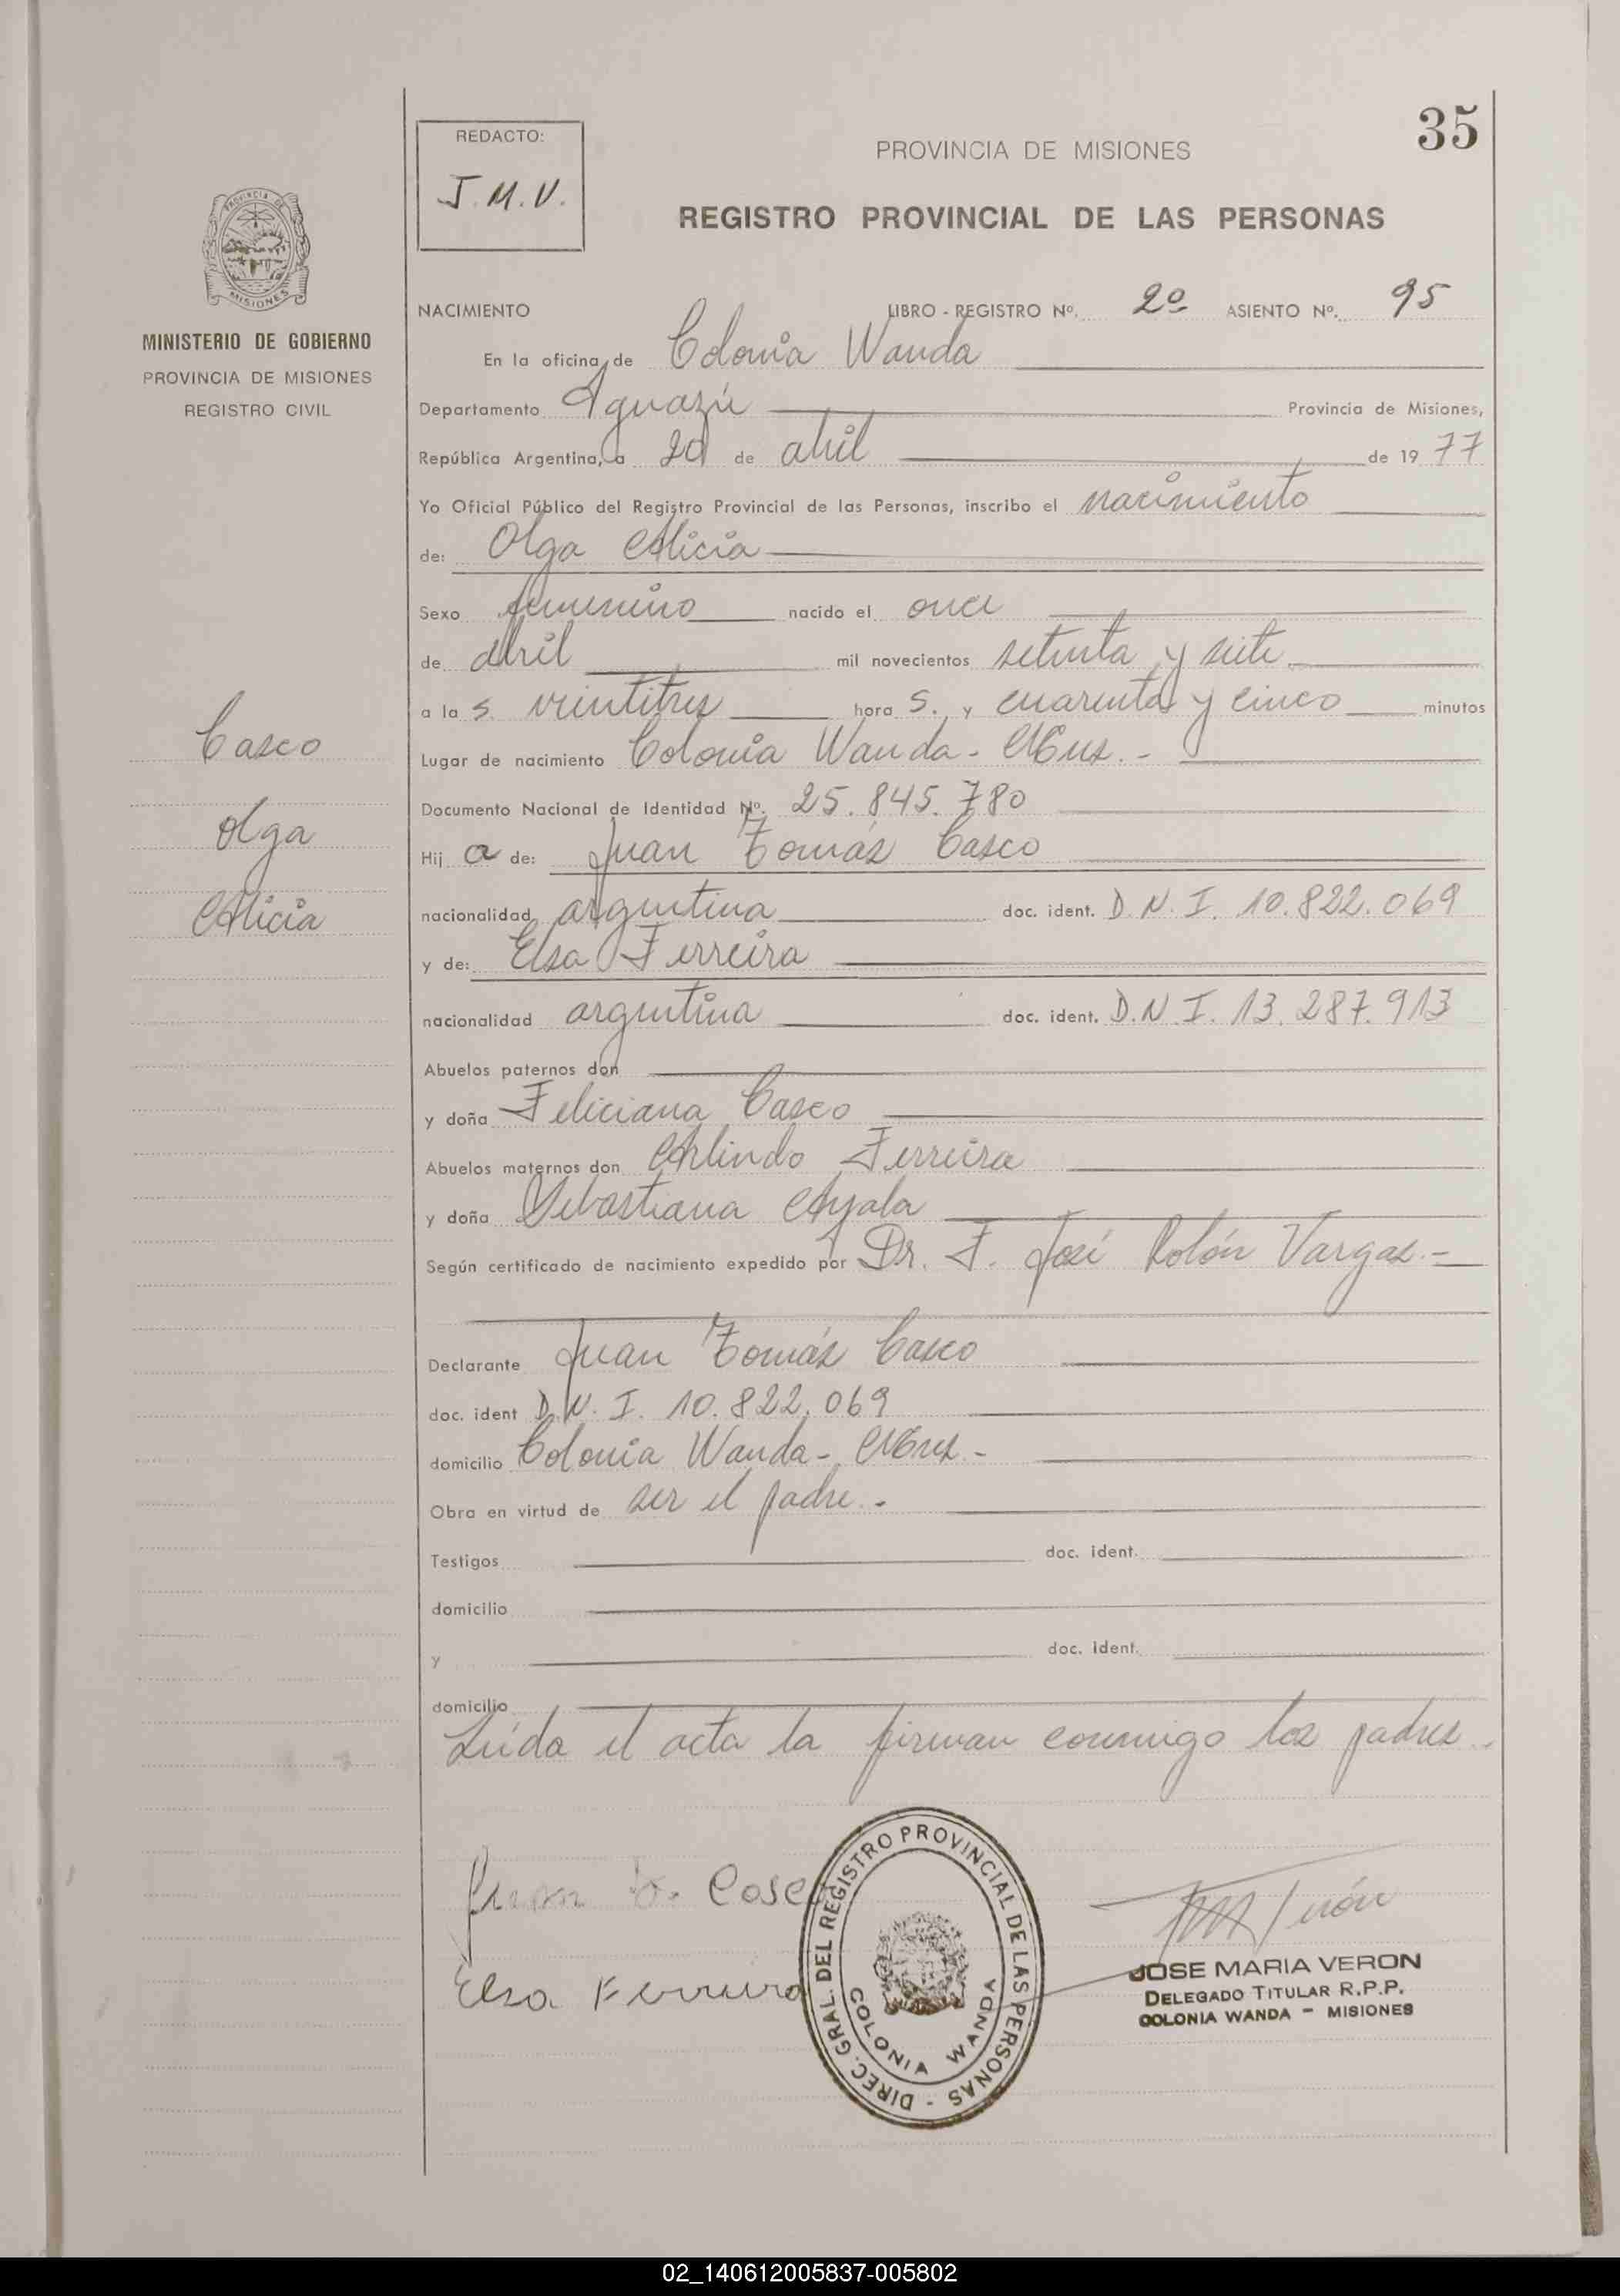 35
REDACTO:
J.M.V.
PROVINCIA DE MISIONES
REGISTRO PROVINCIAL DE LAS PERSONAS
PROVINCIA DE
MISIONES
MINISTERIO DE GOBIERNO
PROVINCIA DE MISIONES
REGISTRO CIVIL
NACIMIENTO LIBRO - REGISTRO Nº. 2º ASIENTO Nº. 95
En la oficina de Colonia Wanda
Departamento Iguazú Provincia de Misiones,
República Argentina, a 20 de abril de 19 77
Yo Oficial Público del Registro Provincial de las Personas, inscribo el nacimiento
de: Olga Alicia
Sexo femenino nacido el once
de abril mil novecientos setenta y siete
a la s. veintitres hora s. y cuarenta y cinco minutos
Casco
Lugar de nacimiento Colonia Wanda - Mnes. -
Documento Nacional de Identidad Nº. 25.845.780
Olga
Hij a de: Juan Tomás Casco
Alicia
nacionalidad argentina doc. ident. D.N.I. 10.822.069
y de: Elsa Ferreira
nacionalidad argentina doc. ident. D.N.I. 13.287.913
Abuelos paternos don
y doña Feliciana Casco
Abuelos maternos don Arlindo Ferreira
y doña Sebastiana Ayala
Según certificado de nacimiento expedido por Dr. F. José Rolón Vargas.-
Declarante Juan Tomás Casco
doc. ident D.N.I. 10.822.069
domicilio Colonia Wanda - Mnes.-
Obra en virtud de ser el padre.-
Testigos doc. ident.
domicilio
y doc. ident.
domicilio
Leída el acta la firman conmigo los padres.-
Juan T. Casco
Elsa Ferreira
DIREC. GRAL. DEL REGISTRO PROVINCIAL DE LAS PERSONAS -
COLONIA WANDA
JOSE MARIA VERON
DELEGADO TITULAR R.P.P.
COLONIA WANDA - MISIONES
02_140612005837-005802